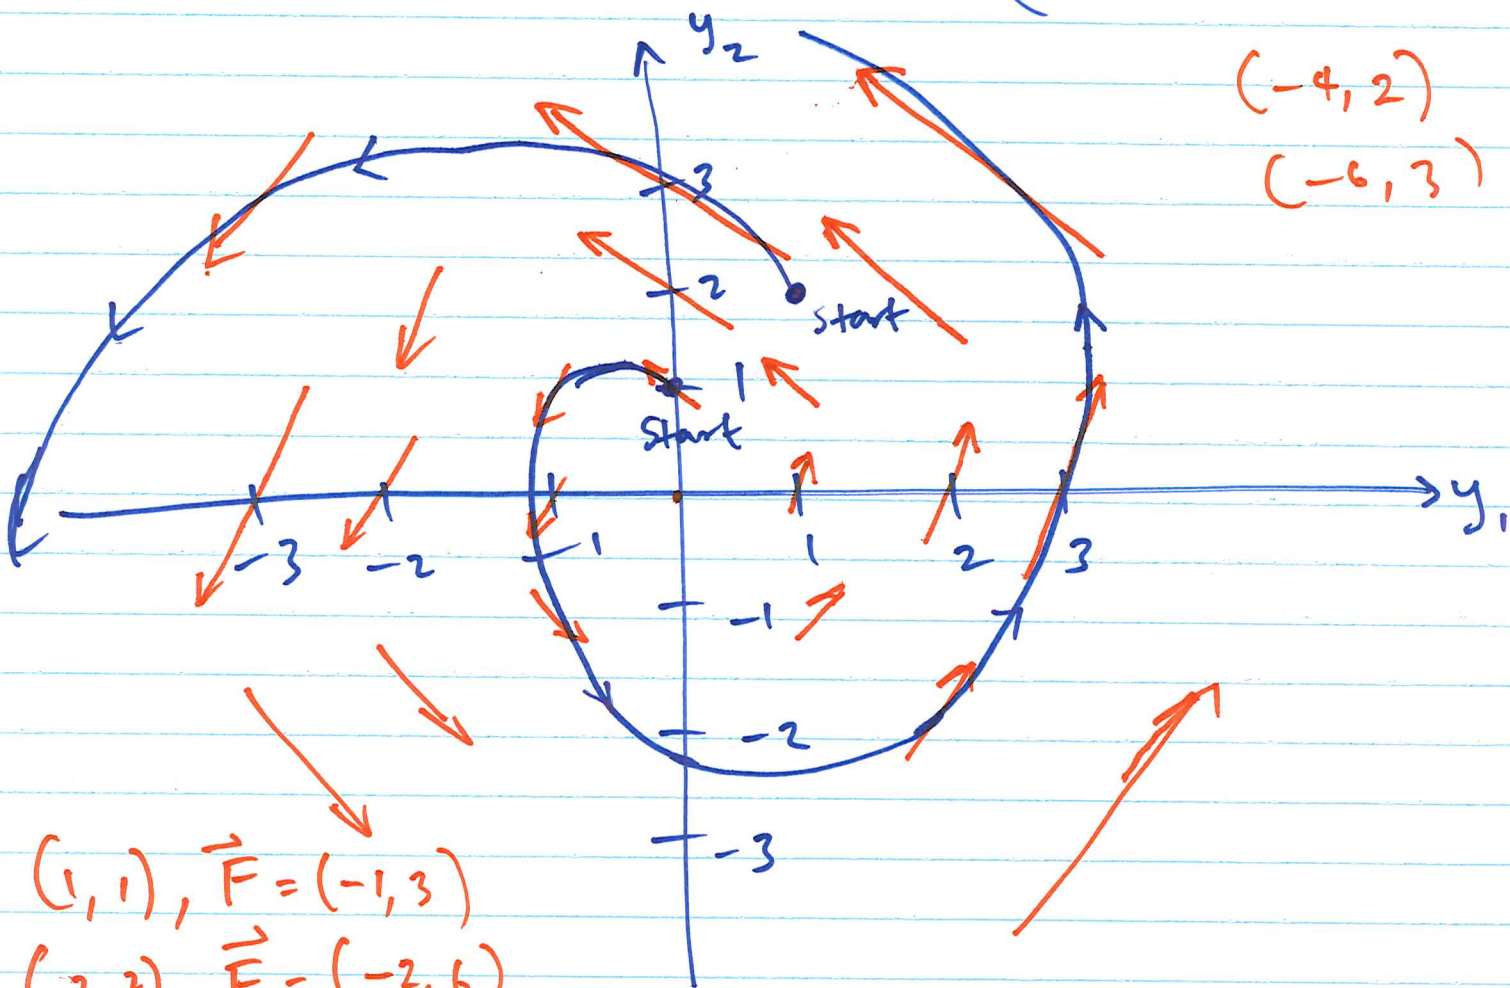 y₂
(-4, 2)
(-6, 3)
3
2
start
1
start
y₁
-3
-2
-1
1
2
3
-1
-2
-3
(1, 1), F⃗ = (-1, 3)
F⃗ = (-2, 6)